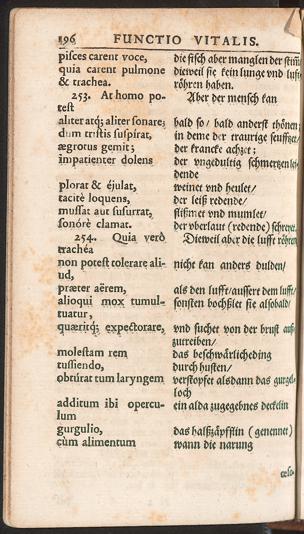 196 FUNCTIO VITALIS.
pisces carent voce,
quia carent pulmone
& trachea.
253. At homo po-
test
aliter atq; aliter sonare;
dum tristis suspirat,
ægrotus gemit;
impatienter dolens
plorat & éjulat,
tacitè loquens,
mussat aut susurrat,
sonórè clamat.
254. Quia verò
trachéa
non potest tolerare ali-
ud,
præter aërem,
alioqui mox tumul-
tuatur,
quæritq; expectorare,
molestam rem
tussiendo,
obtúrat tum laryngem
additum ibi opercu-
lum
gurgulio,
cùm alimentum
die fisch aber manglen der
dieweil sie kein lunge vnd
röhren haben.
Aber der mensch kan
bald so / bald anderst thönen;
in deme der traurige
der krancke achzet;
der vngedultig
dende
weinet vnd heulet /
der leiß redende /
vnd mumlet /
der vberlaut (redende)
Dieweil aber die lufft
nicht kan anders dulden /
als den lufft / aussert dem lufft /
sonsten bochßlet sie alsobald /
vnd suchet von der brust
zutreiben /
das beschwärliche ding
durch husten /
verstopfet alsdann das
loch
ein alda zugegebnes deckelin
das halßzäpfflin (genennet)
wann die narung